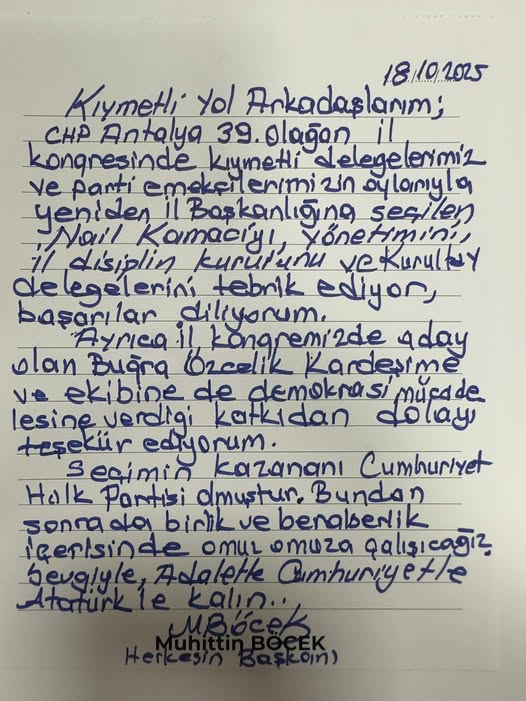 18/10/2025
Kıymetli Yol Arkadaşlarım;
CHP Antalya 39. Olağan il
kongresinde kıymetli delegelerimiz
ve parti emekçilerimizin oylarıyla
yeniden il Başkanlığına seçilen
Nail Kamacı'yı, yönetimini,
il disiplin kurulunu ve Kurultay
delegelerini tebrik ediyor,
başarılar diliyorum.
Ayrıca il kongremizde aday
olan Buğra Özçelik Kardeşime
ve ekibine de demokrasi mücade
lesine verdiği katkıdan dolayı
teşekür ediyorum.
Seçimin kazananı Cumhuriyet
Halk Partisi olmuştur. Bundan
sonrada birlik ve beraberlik
içerisinde omuz omuza çalışıcağız.
Sevgiyle, Adaletle Cumhuriyetle
Atatürk'le kalın..
MBöcek
Muhittin BÖCEK
Herkesin Başkanı